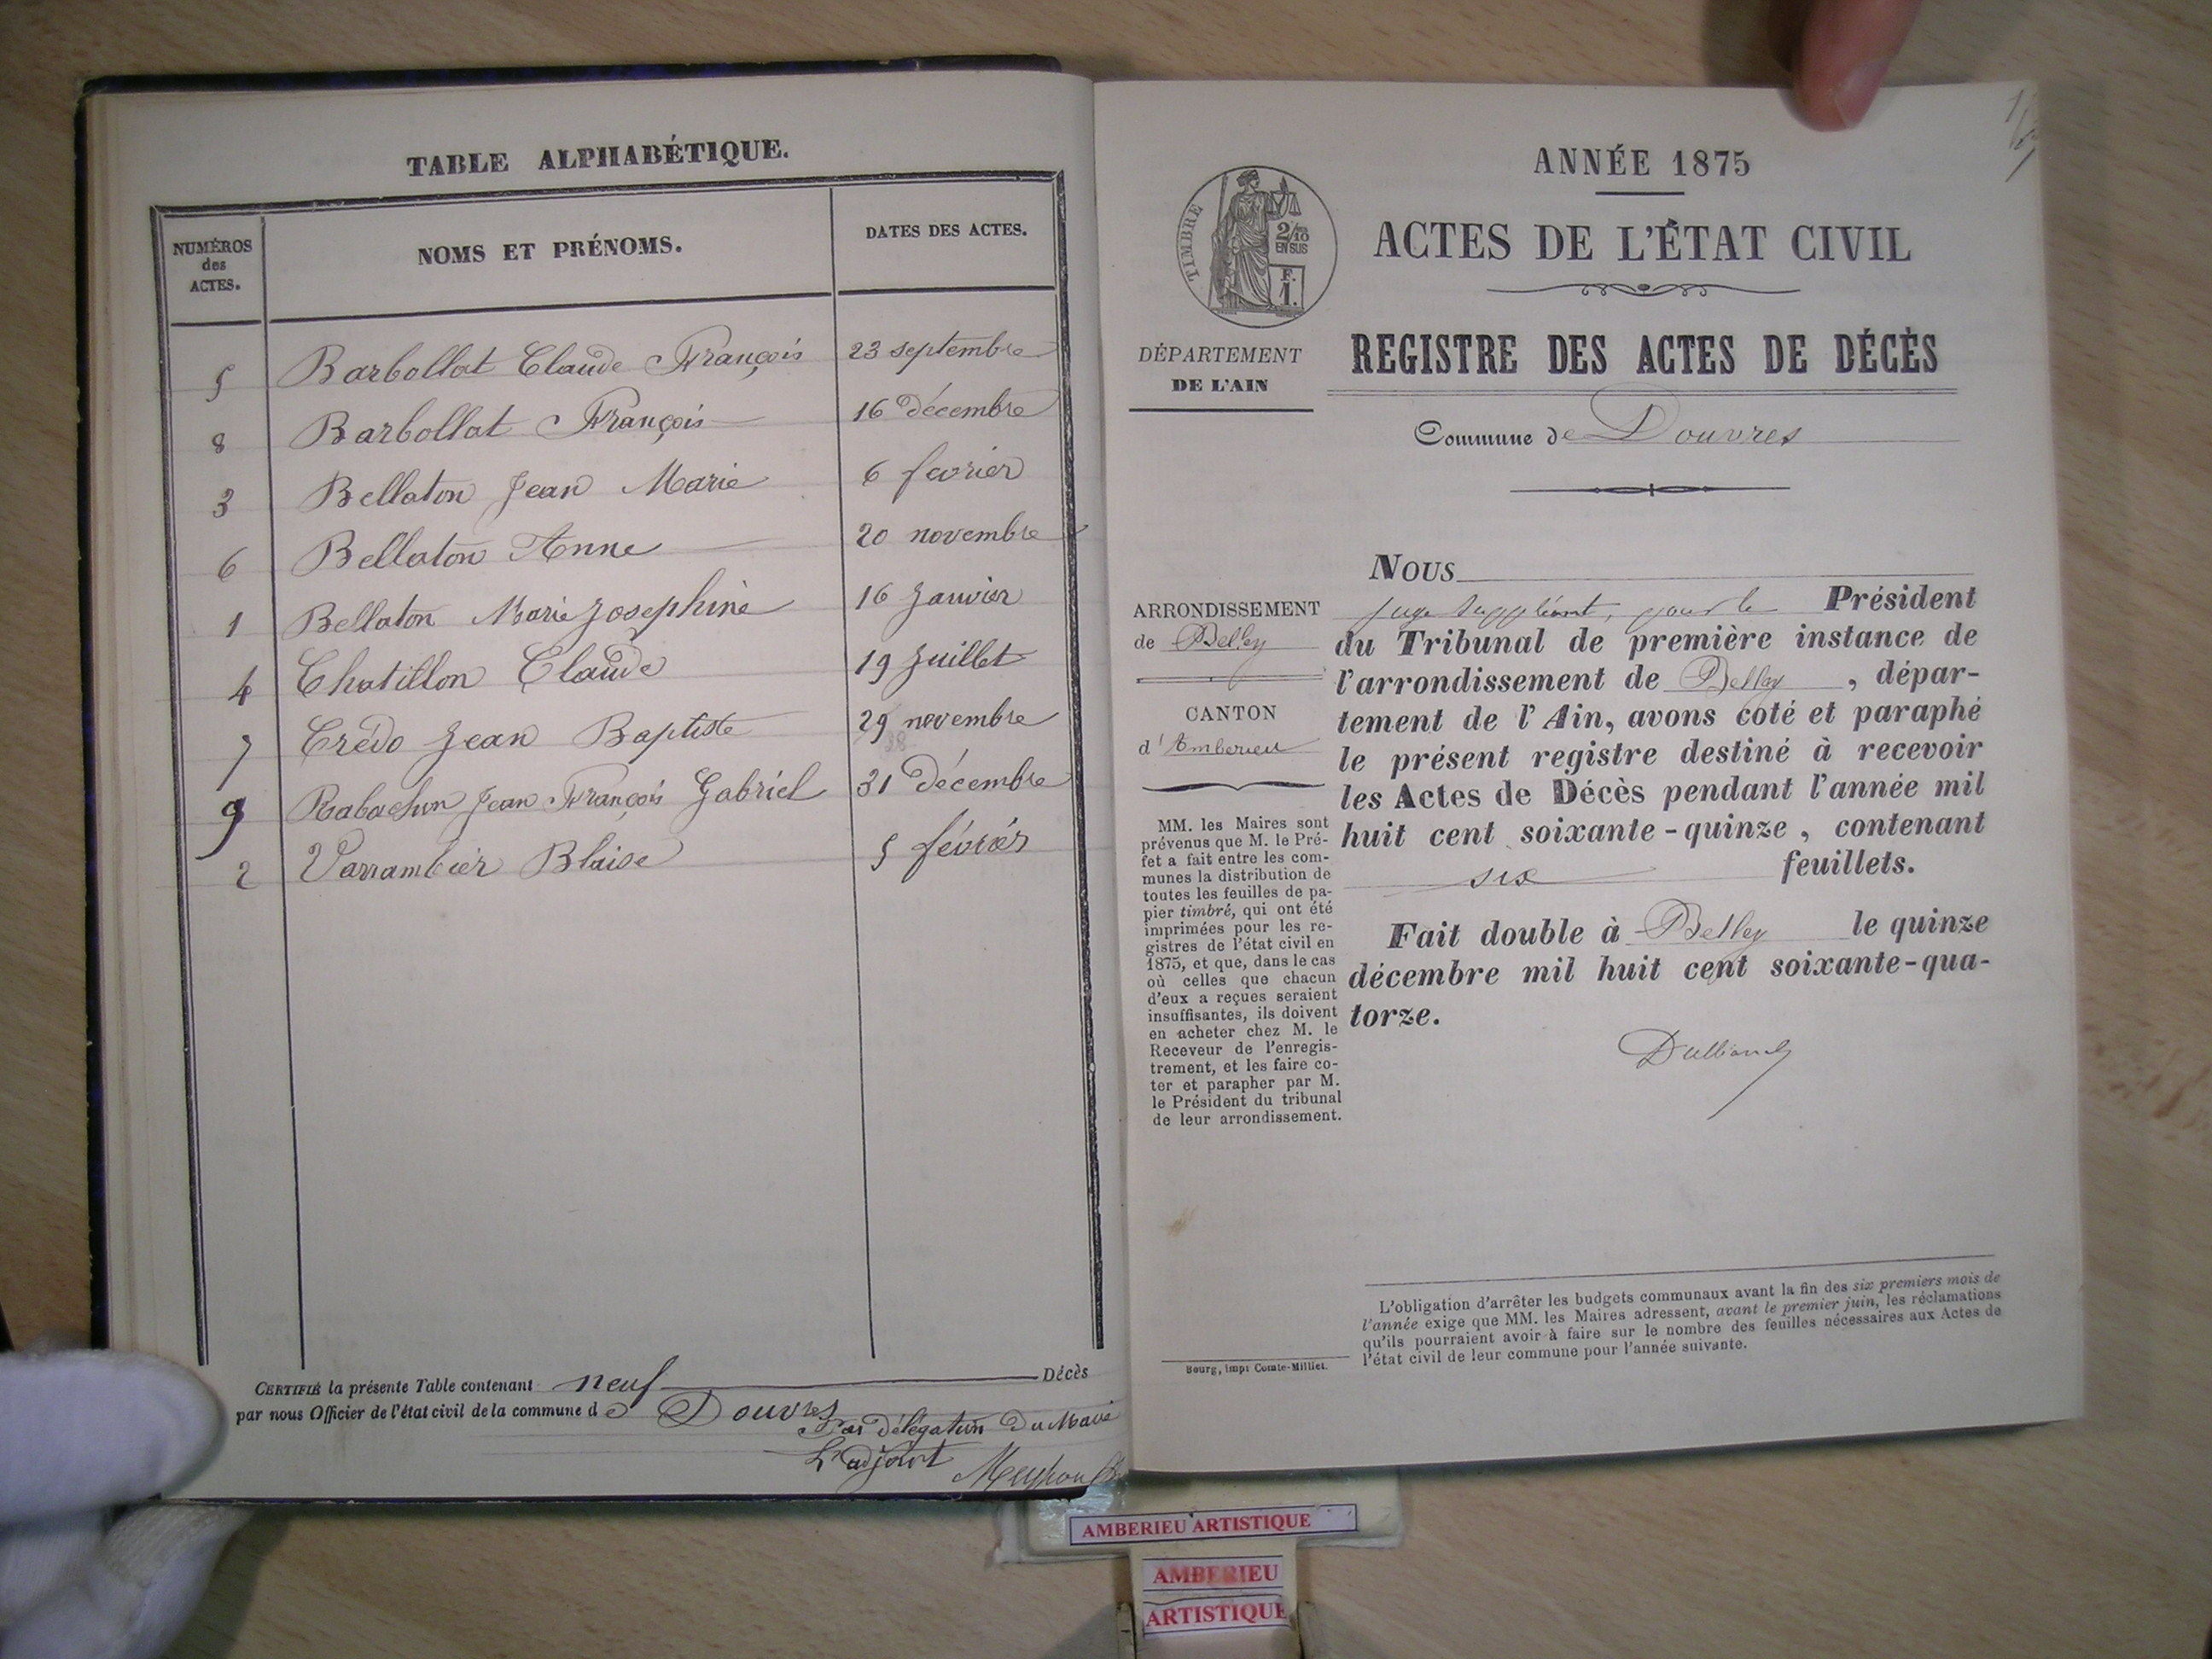 TABLE ALPHABÉTIQUE.
NUMÉROS des ACTES.
NOMS ET PRÉNOMS.
DATES DES ACTES.
5 Barbollat Claude François 23 septembre
8 Barbollat François 16 décembre
3 Bellaton Jean Marie 6 fevrier
6 Bellaton Anne 20 novembre
1 Bellaton Marie Josephine 16 Janvier
4 Chatillon Claude 19 Juillet
7 Crédo Jean Baptiste 29 novembre
9 Rabachon Jean François Gabriel 31 Décembre
2 Varrambier Blaise 5 février
CERTIFIÉ la présente Table contenant neuf Décès
par nous Officier de l'état civil de la commune de Douvres
Par délégation du Maire
L'adjoint
ANNÉE 1875
TIMBRE
2/10
EN SUS
F.
1.
ACTES DE L'ÉTAT CIVIL
DÉPARTEMENT
DE L'AIN
REGISTRE DES ACTES DE DÉCÈS
Commune de Douvres
ARRONDISSEMENT
de Belley
CANTON
d'Amberieu
MM. les Maires sont
prévenus que M. le Pré-
fet a fait entre les com-
munes la distribution de
toutes les feuilles de pa-
pier timbré, qui ont été
imprimées pour les re-
gistres de l'état civil en
1875, et que, dans le cas
où celles que chacun
d'eux a reçues seraient
insuffisantes, ils doivent
en acheter chez M. le
Receveur de l'enregis-
trement, et les faire co-
ter et parapher par M.
le Président du tribunal
de leur arrondissement.
NOUS
juge suppléant, pour le Président
du Tribunal de première instance de
l'arrondissement de Belley, dépar-
tement de l'Ain, avons coté et paraphé
le présent registre destiné à recevoir
les Actes de Décès pendant l'année mil
huit cent soixante-quinze, contenant
six feuillets.
Fait double à Belley le quinze
décembre mil huit cent soixante-qua-
torze.
L'obligation d'arrêter les budgets communaux avant la fin des six premiers mois de
l'année exige que MM. les Maires adressent, avant le premier juin, les réclamations
qu'ils pourraient avoir à faire sur le nombre des feuilles nécessaires aux Actes de
l'état civil de leur commune pour l'année suivante.
Bourg, imp. Comte-Milliet.
AMBERIEU ARTISTIQUE
AMBERIEU
ARTISTIQUE